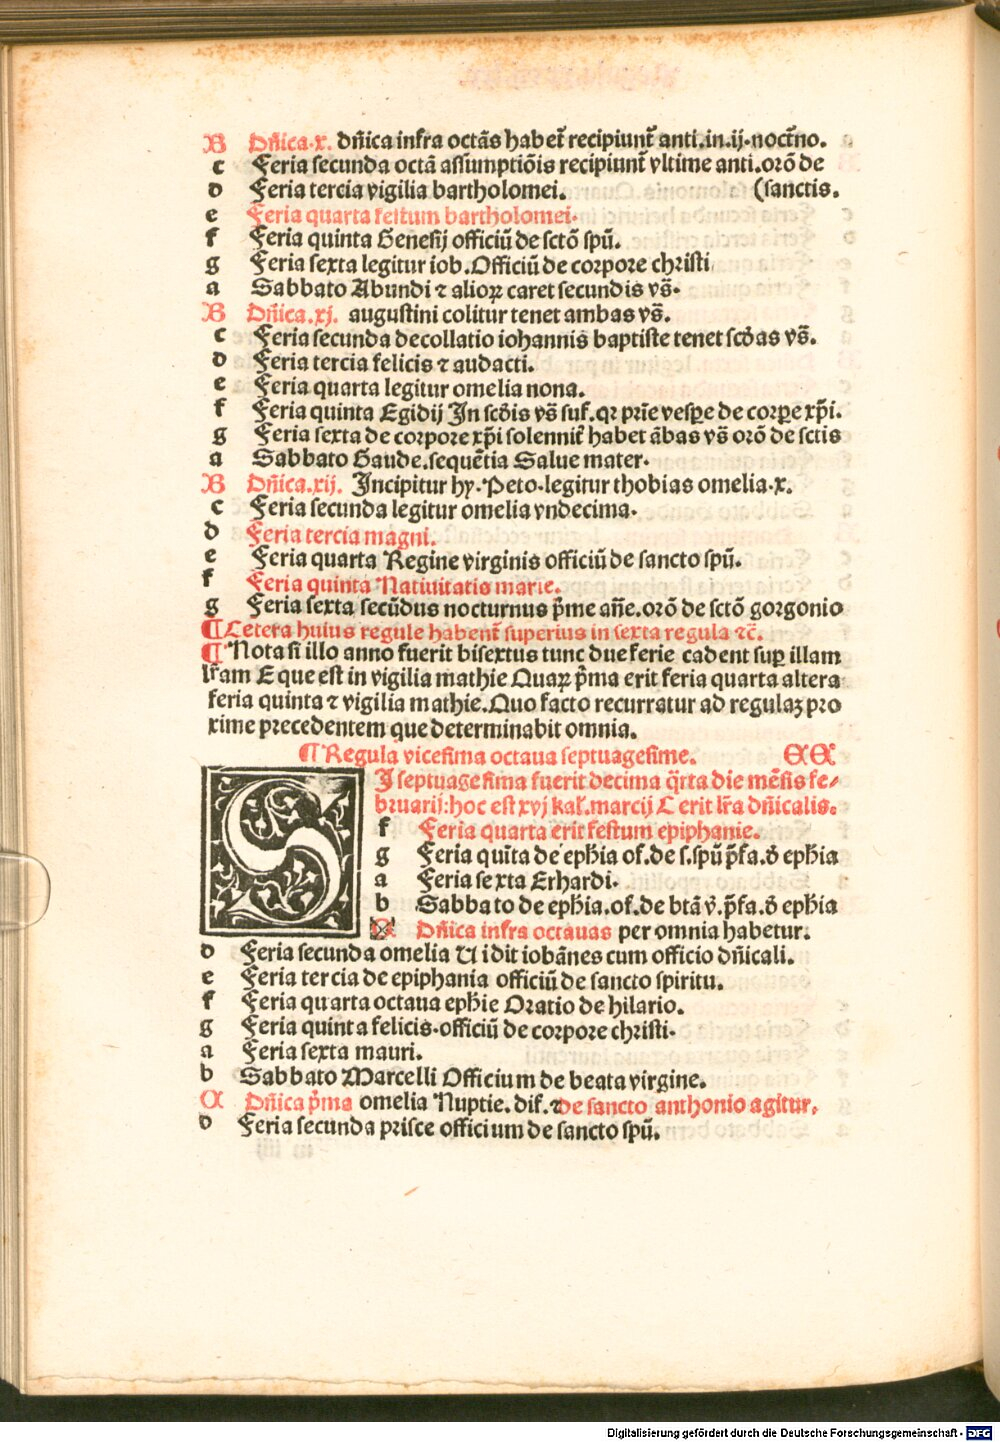 B Dñica.x. dñica infra octãs habet᷑ recipiunt᷑ anti.in.ij.noct᷑no.
c Feria secunda octã assumptiõis recipiunt᷑ vltime anti.orõ de
d Feria tercia vigilia bartholomei. (sanctis.
e Feria quarta festum bartholomei.
f Feria quinta Genesij officiũ de sctõ spũ.
g Feria sexta legitur iob.Officiũ de corpore christi
a Sabbato Abundi ⁊ alioꝝ caret secundis vs̃.
B Dñica.xj. augustini colitur tenet ambas vs̃.
c Feria secunda decollatio iohannis baptiste tenet scd̃as vs̃.
d Feria tercia felicis ⁊ audacti.
e Feria quarta legitur omelia nona.
f Feria quinta Egidij In scd̃is vs̃ suf.qꝛ prĩe vesꝑe de corꝑe xp̃i.
g Feria sexta de corpore xp̃i solennit᷑ habet ãbas vs̃ orõ de sctis
a Sabbato Gaude.sequẽtia Salue mater.
B Dñica.xij. Incipitur hy.Peto.legitur thobias omelia.x.
c Feria secunda legitur omelia vndecima.
d Feria tercia magni.
e Feria quarta Regine virginis officiũ de sancto spũ.
f Feria quinta Natiuitatis marie.
g Feria sexta secũdus nocturnus p̃me añe.orõ de sctõ gorgonio
¶Cetera huius regule habent᷑ superius in sexta regula ⁊c̃.
¶Nota si illo anno fuerit bisextus tunc due ferie cadent suꝑ illam
lr̃am E que est in vigilia mathie Quaꝝ p̃ma erit feria quarta altera
feria quinta ⁊ vigilia mathie.Quo facto recurratur ad regulaꝫ pro
xime precedentem que determinabit omnia.
¶Regula vicesima octaua septuagesime. CC
SI septuagesima fuerit decima q̃rta die mẽsis fe-
bruarij:hoc est xvj kal̃.marcij C erit lr̃a dñicalis.
f Feria quarta erit festum epiphanie.
g Feria quĩta de eph̃ia of.de s.spũ p̃fa.d̃ eph̃ia
a Feria sexta Erhardi.
b Sabbato de eph̃ia.of.de btã ṽ.p̃fa.d̃ eph̃ia
C Dñica infra octauas per omnia habetur.
d Feria secunda omelia Vidit iohãnes cum officio dñicali.
e Feria tercia de epiphania officiũ de sancto spiritu.
f Feria quarta octaua eph̃ie Oratio de hilario.
g Feria quinta felicis.officiũ de corpore christi.
a Feria sexta mauri.
b Sabbato Marcelli Officium de beata virgine.
C Dñica p̃ma omelia Nuptie.dif.⁊de sancto anthonio agitur.
d Feria secunda prisce officium de sancto spũ.
Digitalisierung gefördert durch die Deutsche Forschungsgemeinschaft - DFG